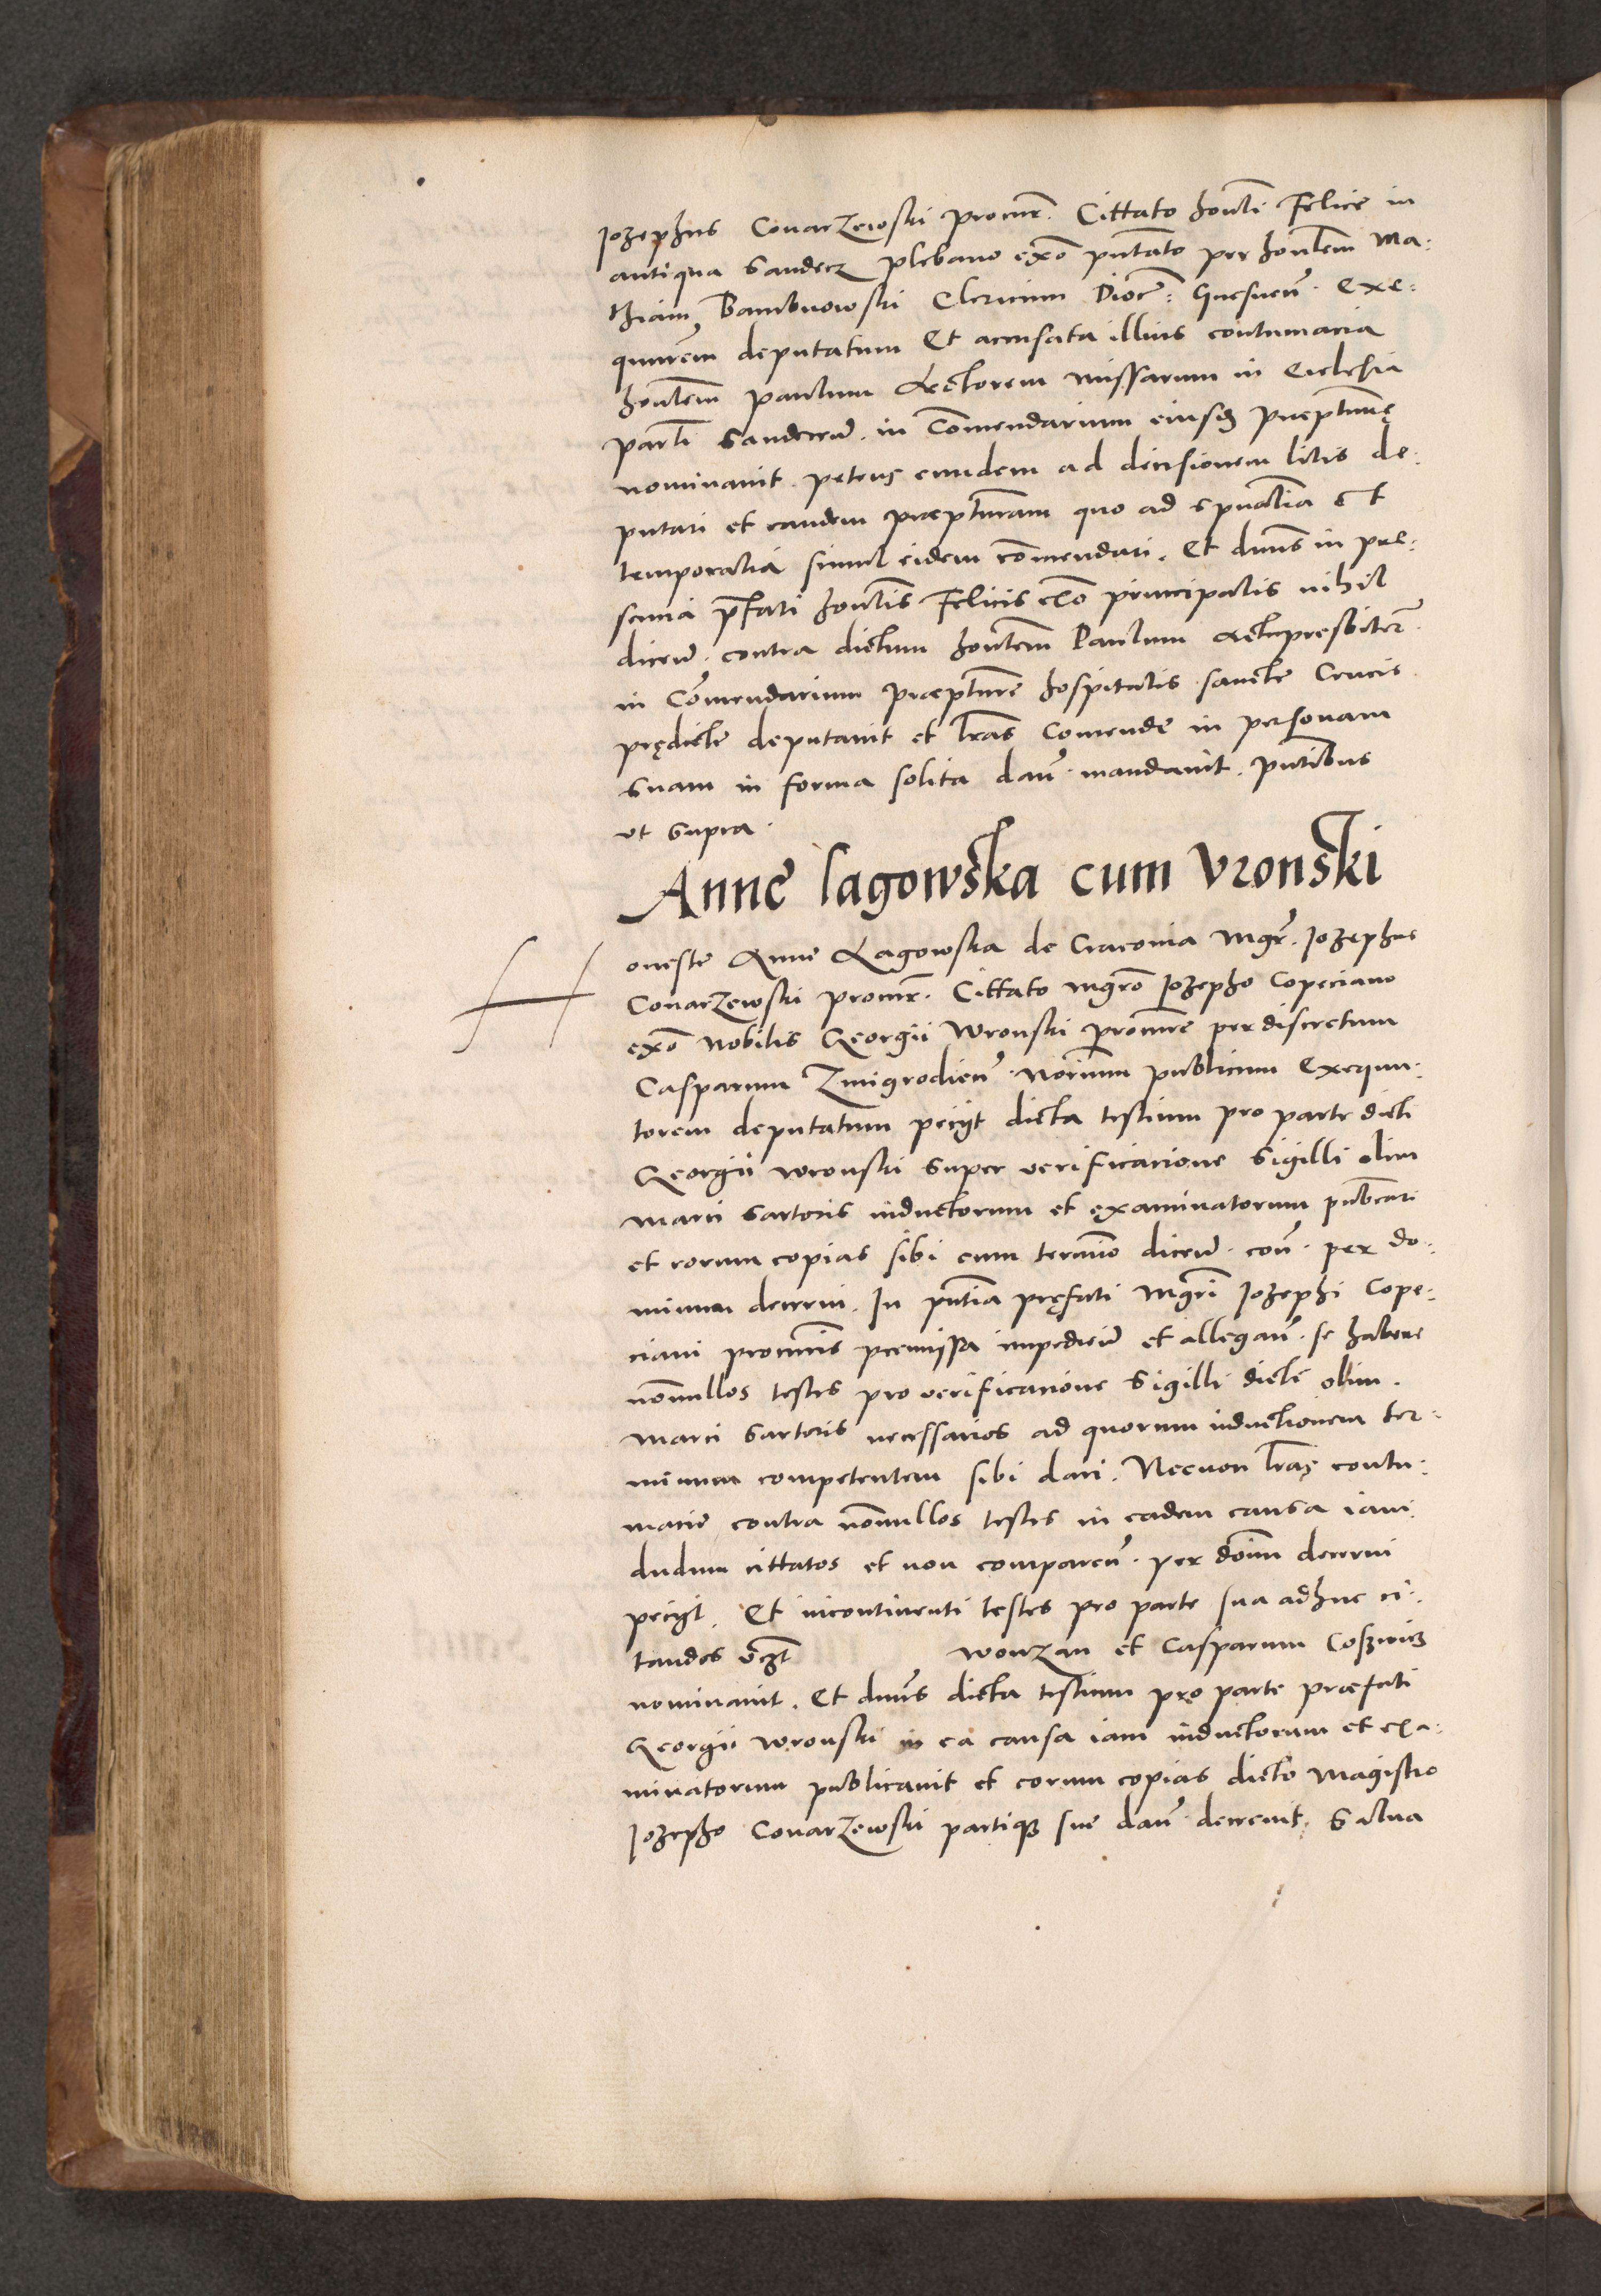 Jozephus Conarzewski procur̃. Cittato hon̄li Felice in
antiqua Sandecz plebano ex̄o pn̄tato per hon̄lem Ma:
thiam Bambnowski Clericum Dioc̄: Gnesnen̄. Exe:
quutrēm deputatum Et accusata illius contumacia
hon̄lem Paulum Lectorem missarum in Ecclesia
par̄li Sandecen̄. in Com̄endarium eiusd̄ præpt̄uræ
nominauit petens eundem ad decisionem litis de:
putari et eandem præpt̄uram quo ad spūalia Et
temporalia simul eidem com̄endari. Et dn̄us in præ:
sencia p̄fati hon̄lis Felicis ex̄o principalis nihil
dicen̄. contra dictum hon̄lem Paulum Altepresbiter̄.
in Com̄endarium præpt̄uræ hospitalis sancte Crucis
prędicte deputauit et l̄ras Comende in personam
suam in forma solita dan̄. mandauit. pn̄tibus
ut supra.
Anne Lagowska cum Vronski
H
oneste Anne Lagowska de Cracouia Mgr̄. Jozephus
Conarzewski procur̃. Cittato mgr̄o Jozepho Copeciano
ex̄o Nobilis Georgii Wronski procur̄e per discretum
Casparum Zmigrodien̄. No̅rium publicum Exequu:
torem deputatum peciit dicta testium pro parte dicti
Georgii Wronski super verificacione Sigilli olim
Marci Sartoris inductorum et examinatorum pub̄cari
et eorum copias sibi cum termi̅o dicen̄. con̄. per do:
minum decerni. In pn̄tia pręfati Mgr̄i Jozephi Cope:
ciani procur̄is premissa impedien̄ et allegan̄. se habere
non̄ullos testes pro verificacione Sigilli dicti olim.
Marci Sartoris necessarios ad quorum inductionem ter:
minum competentem sibi dari. Necnon l̄ras contu:
macie contra non̄ullos testes in eadem causa iam
dudum cittatos et non comparen̄. per do̅um decerni
peciit. Et incontinenti testes pro parte sua adhuc ci:
tandos vz̄t Wonzan et Casparum Coszmicz
nominauit. Et dn̄us dicta testium pro parte præfati
Georgii Wronski in ea causa iam inductorum et exa:
minatorum publicauit et eorum copias dicto Magistro
Jozepho Conarzewski partiqz sue dan̄. decreuit, Salua